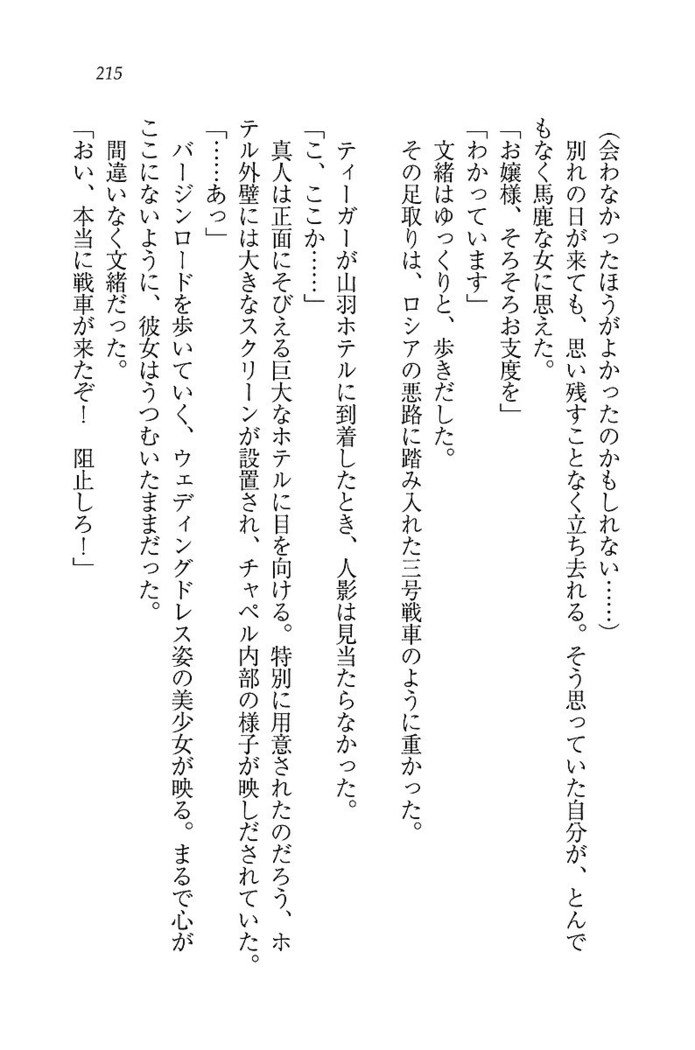 215
(会わなかったほうがよかったのかもしれない……)
別れの日が来ても、思い残すことなく立ち去れる。そう思っていた自分が、とんで
もなく馬鹿な女に思えた。
「お嬢様、そろそろお支度を」
「わかっています」
文緒はゆっくりと、歩きだした。
その足取りは、ロシアの悪路に踏み入れた三号戦車のように重かった。
ティーガーが山羽ホテルに到着したとき、人影は見当たらなかった。
「こ、ここか……」
真人は正面にそびえる巨大なホテルに目を向ける。特別に用意されたのだろう、ホ
テル外壁には大きなスクリーンが設置され、チャペル内部の様子が映しだされていた。
「……あっ」
バージンロードを歩いていく、ウェディングドレス姿の美少女が映る。まるで心が
ここにないように、彼女はうつむいたままだった。
間違いなく文緒だった。
「おい、本当に戦車が来たぞ！　阻止しろ！」